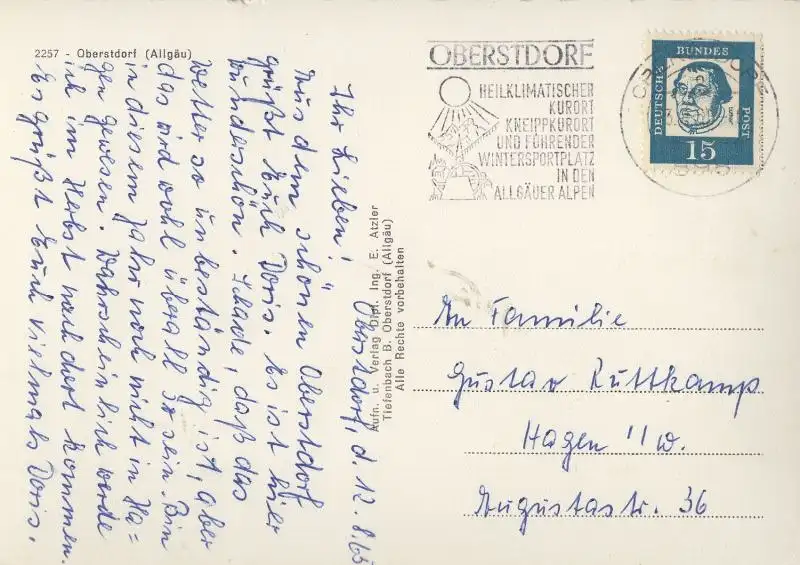 2257 - Oberstdorf (Allgäu)
Oberstdorf, d. 12.8.65
Ihr Lieben!
Aus dem schönen Oberstdorf
grüßt Euch Doris. Es ist hier
wunderschön. Schade, daß das
Wetter so unbeständig ist, aber
das wird wohl überall so sein. Bin
in diesem Jahr noch nicht in Ha=
gen gewesen. Wahrscheinlich werde
ich im Herbst nach dort kommen.
Es grüßt Euch vielmals Doris.
Aufn. u. Verlag Dipl. Ing. E. Atzler
Tiefenbach B. Oberstdorf (Allgäu)
Alle Rechte vorbehalten
OBERSTDORF
HEILKLIMATISCHER
KURORT
KNEIPPKURORT
UND FÜHRENDER
WINTERSPORTPLATZ
IN DEN
ALLGÄUER ALPEN
DEUTSCHE
BUNDES
POST
15
An Familie
Gustav Kuttkamp
Hagen i/W.
Augustastr. 36